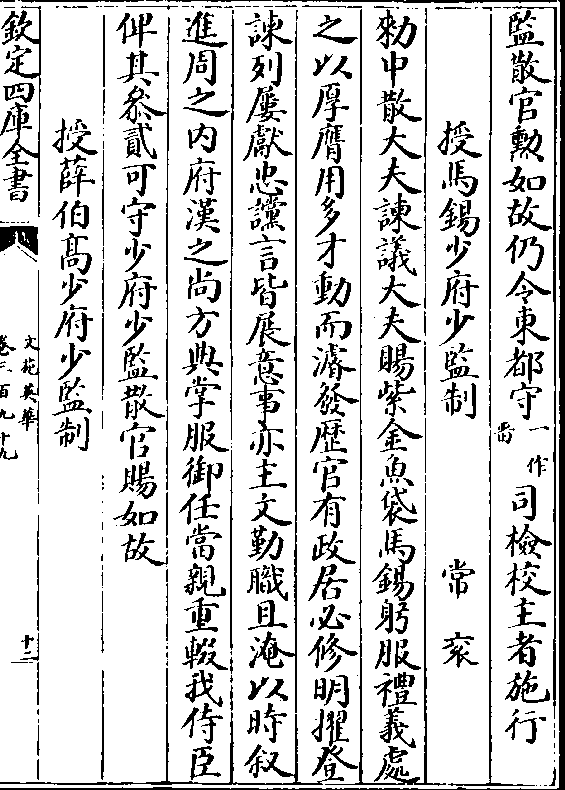 監散官勲如故仍令東都守一作畱司檢校主者施行
授馬錫少府少監制 常衮
勅中散大夫諫議大夫賜紫金魚袋馬錫躬服禮義處
之以厚膺用多才動而濬發歴官有政居必修明擢登
諫列屢獻忠讜言皆展意事亦主文勤職且淹以時叙
進周之内府漢之尚方典掌服御任當親重輟我侍臣
俾其叅貳可守少府少監散官賜如故
授薛伯髙少府少監制
欽定四庫全書
文苑英華
卷三百九十九
十二